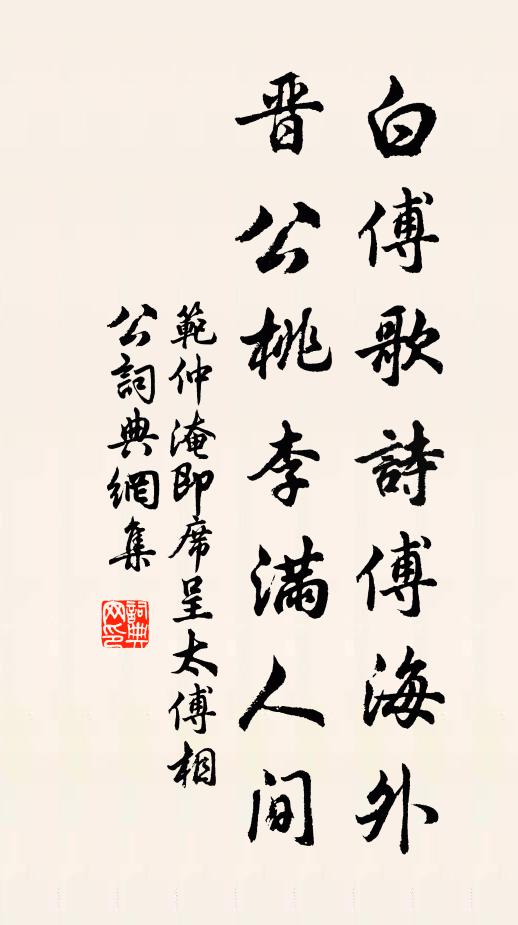 白傅歌詩傅海外
晋公桃李满人间
範仲淹即席呈太傅相
公詞典網集
詞典網印